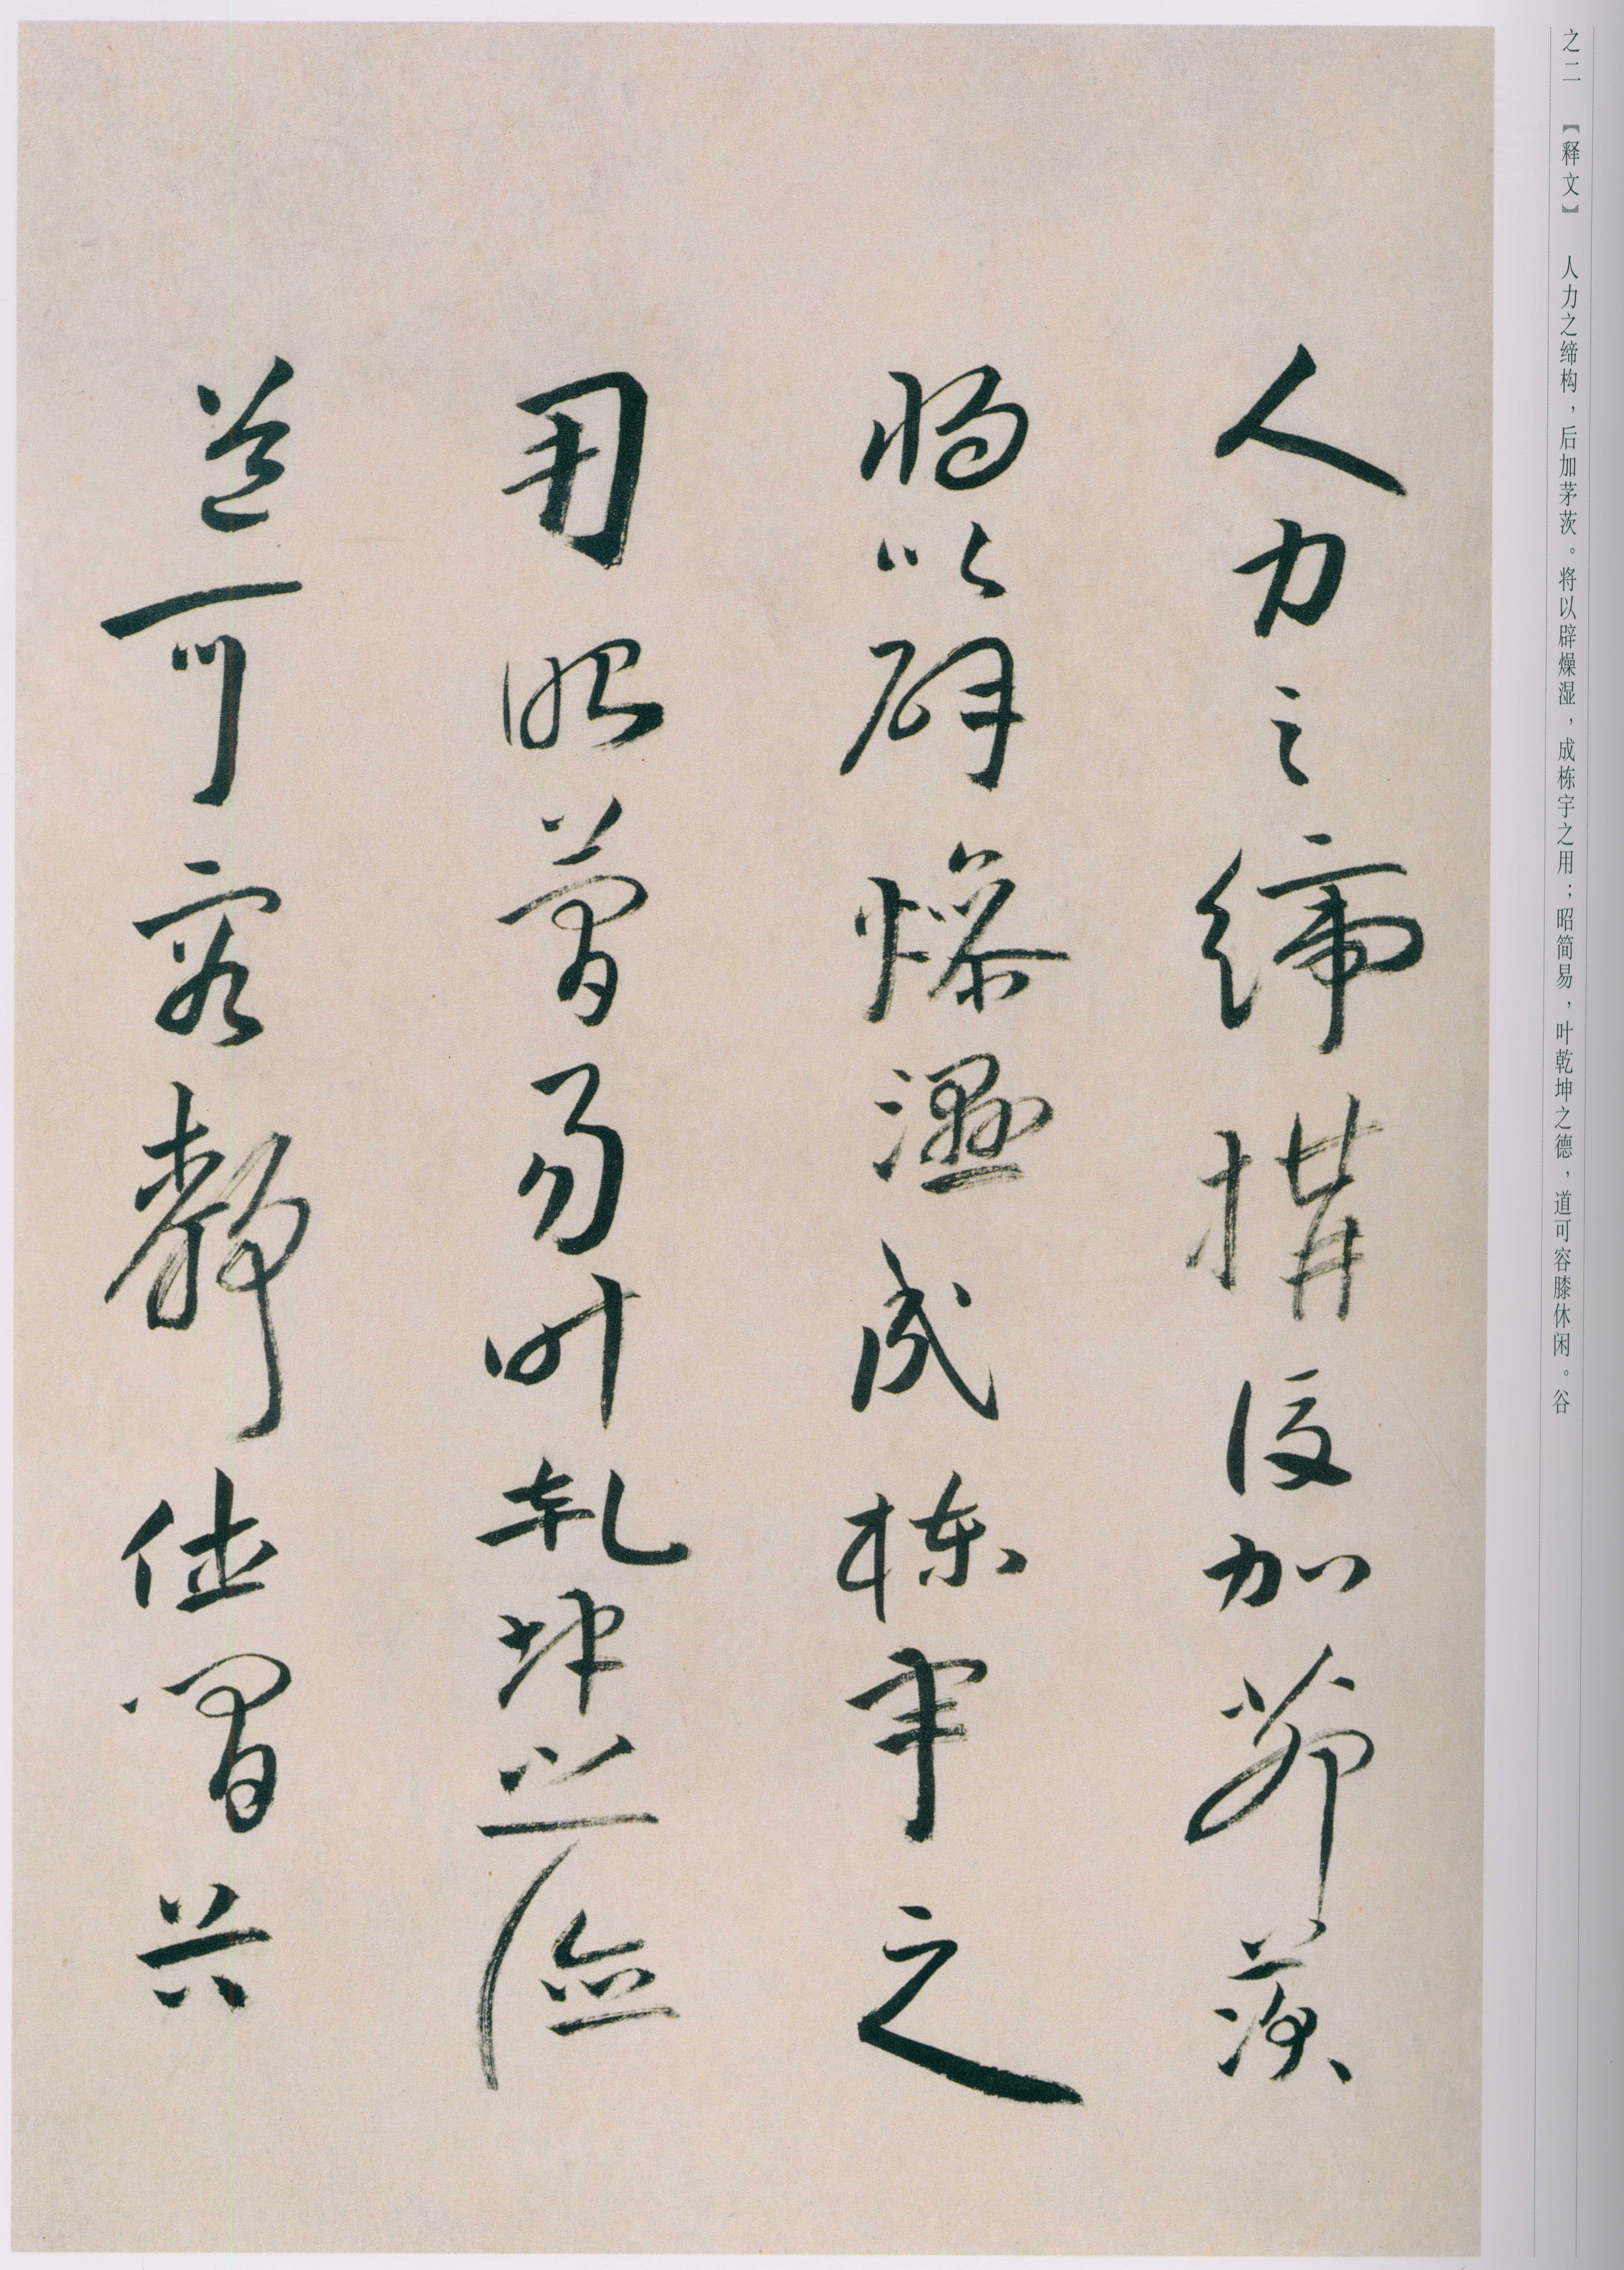 之二 【释文】 人力之缔构，后加茅茨。将以辟燥湿，成栋宇之用；昭简易，叶乾坤之德，道可容膝休闲。谷
人力之締構後加茅茨
将以辟燥濕成棟宇之
用昭簡易叶乾坤之德
道可容膝休閒谷